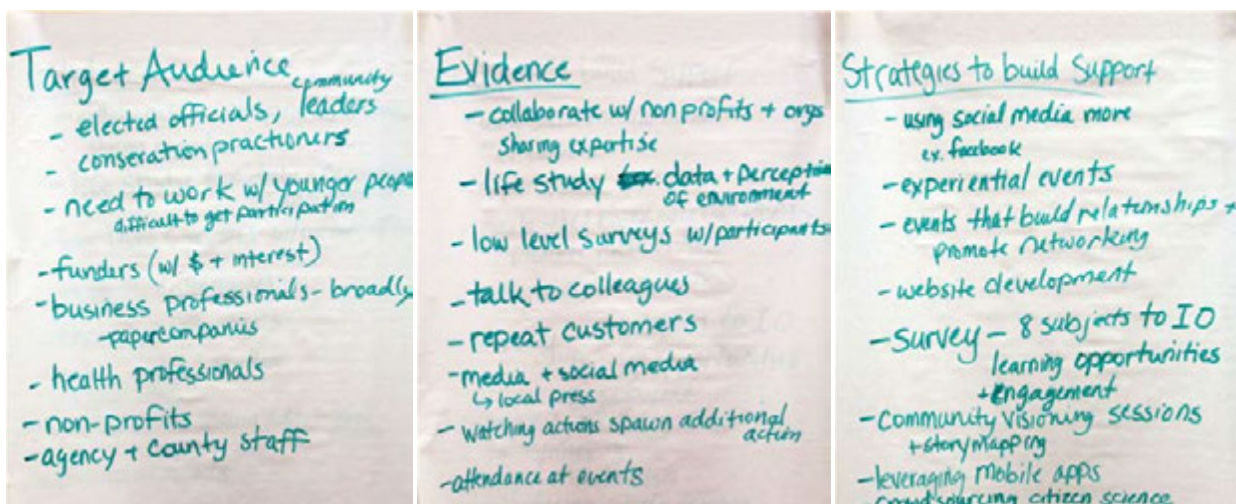 Target Audience
- elected officials, community leaders
- conseration practioners
- need to work w/ younger people
difficult to get participation
- funders (w/ $ + interest)
- business professionals - broadly
- papercompanies
- health professionals
- non-profits
- agency + county staff
Evidence
- collaborate w/ non profits + orgs
sharing expertise
- life study data + perception
of environment
- low level surveys w/participants
- talk to colleagues
- repeat customers
- media + social media
↳ local press
- watching actions spawn additional
action
- attendance at events
Strategies to build Support
- using social media more
ex. facebook
- experiential events
- events that build relationships +
promote networking
- website development
- Survey - 8 subjects to IO
learning opportunities
+ engagement
- Community Visioning sessions
+ story mapping
- leveraging mobile apps
crowdsourcing citizen science